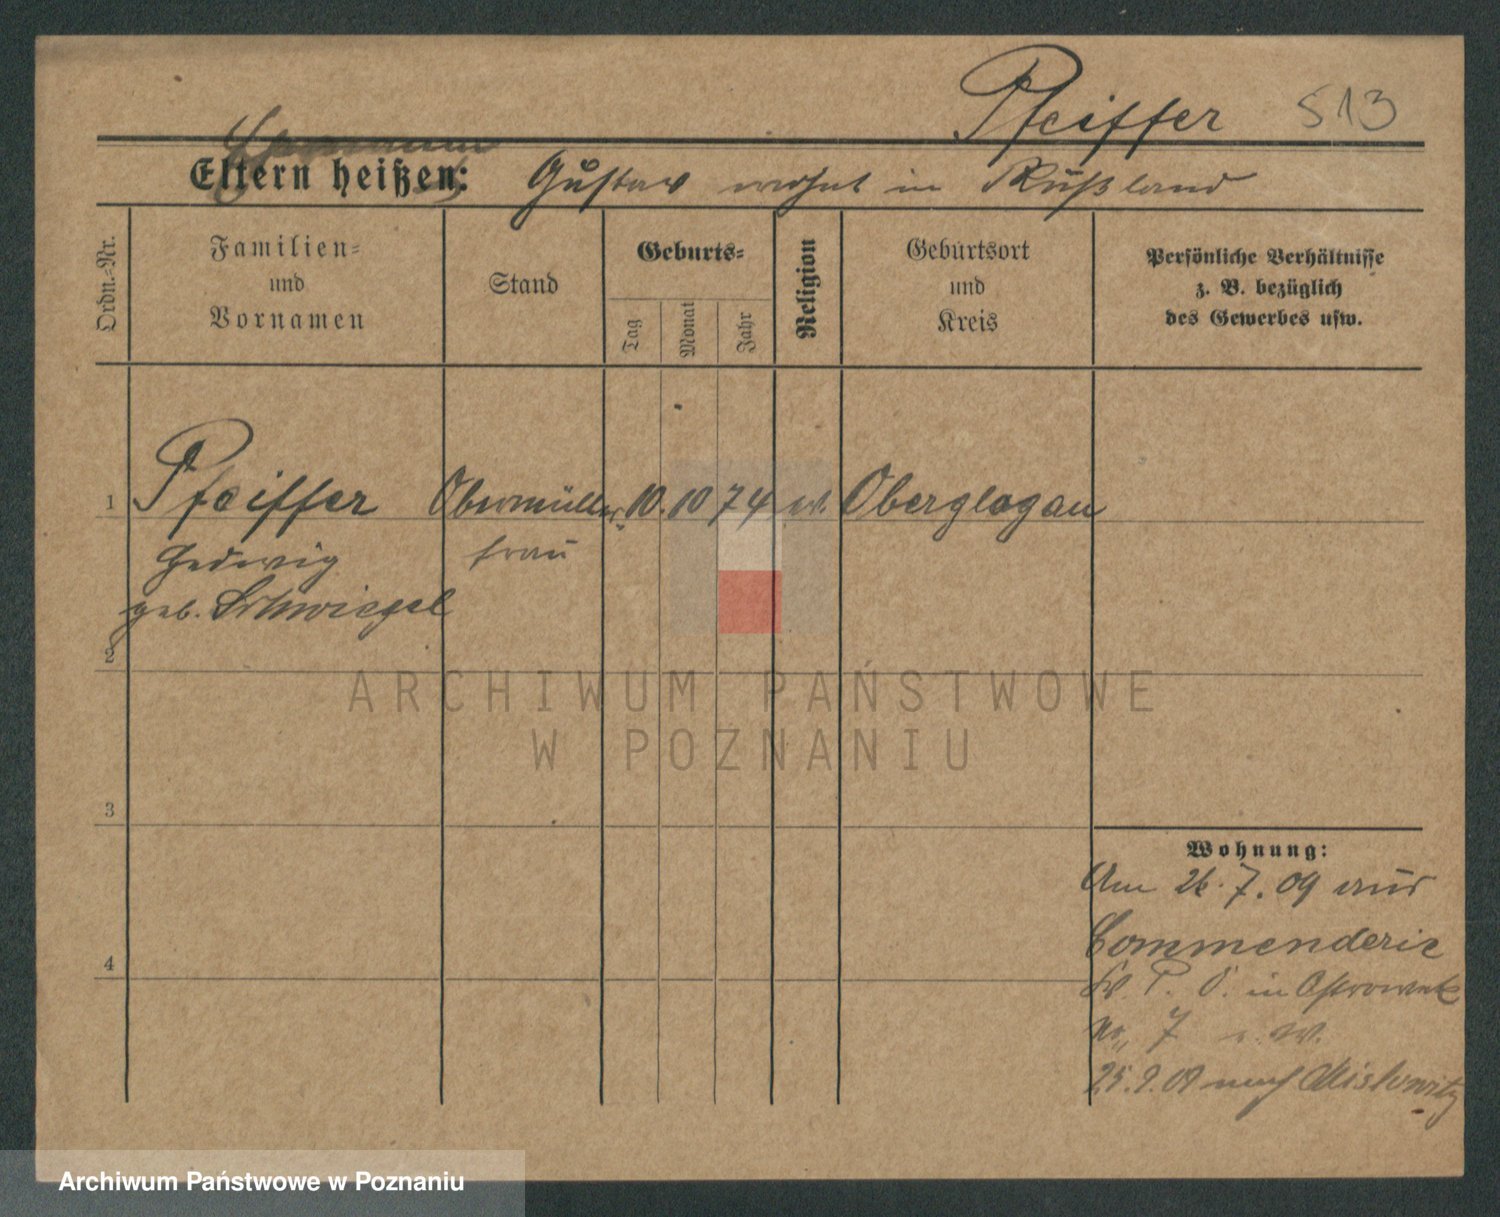 Pfeiffer 513
Ehemann
Eltern heißen: Gustav wohnt in Rußland
Ordn.-Nr.
Familien-
und
Vornamen
Stand
Geburts-
Tag
Monat
Jahr
Religion
Geburtsort
und
Kreis
Persönliche Verhältnisse
z. B. bezüglich
des Gewerbes usw.
1 Pfeiffer Obermüller- 10. 10 74 ev. Oberglogau
Hedwig frau
geb. Schwiegel
2
3
4
Wohnung:
Am 26.7.09 aus
Commenderie
Kr. P. O. in Ostrowek
No 7 b. W.
25.9.09 nach Mislowitz
ARCHIWUM PAŃSTWOWE
W POZNANIU
Archiwum Państwowe w Poznaniu